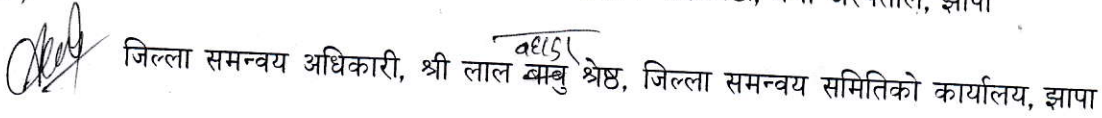 झापा
जिल्ला समन्वय अधिकारी, श्री लाल बहादुर श्रेष्ठ, जिल्ला समन्वय समितिको कार्यालय, झापा